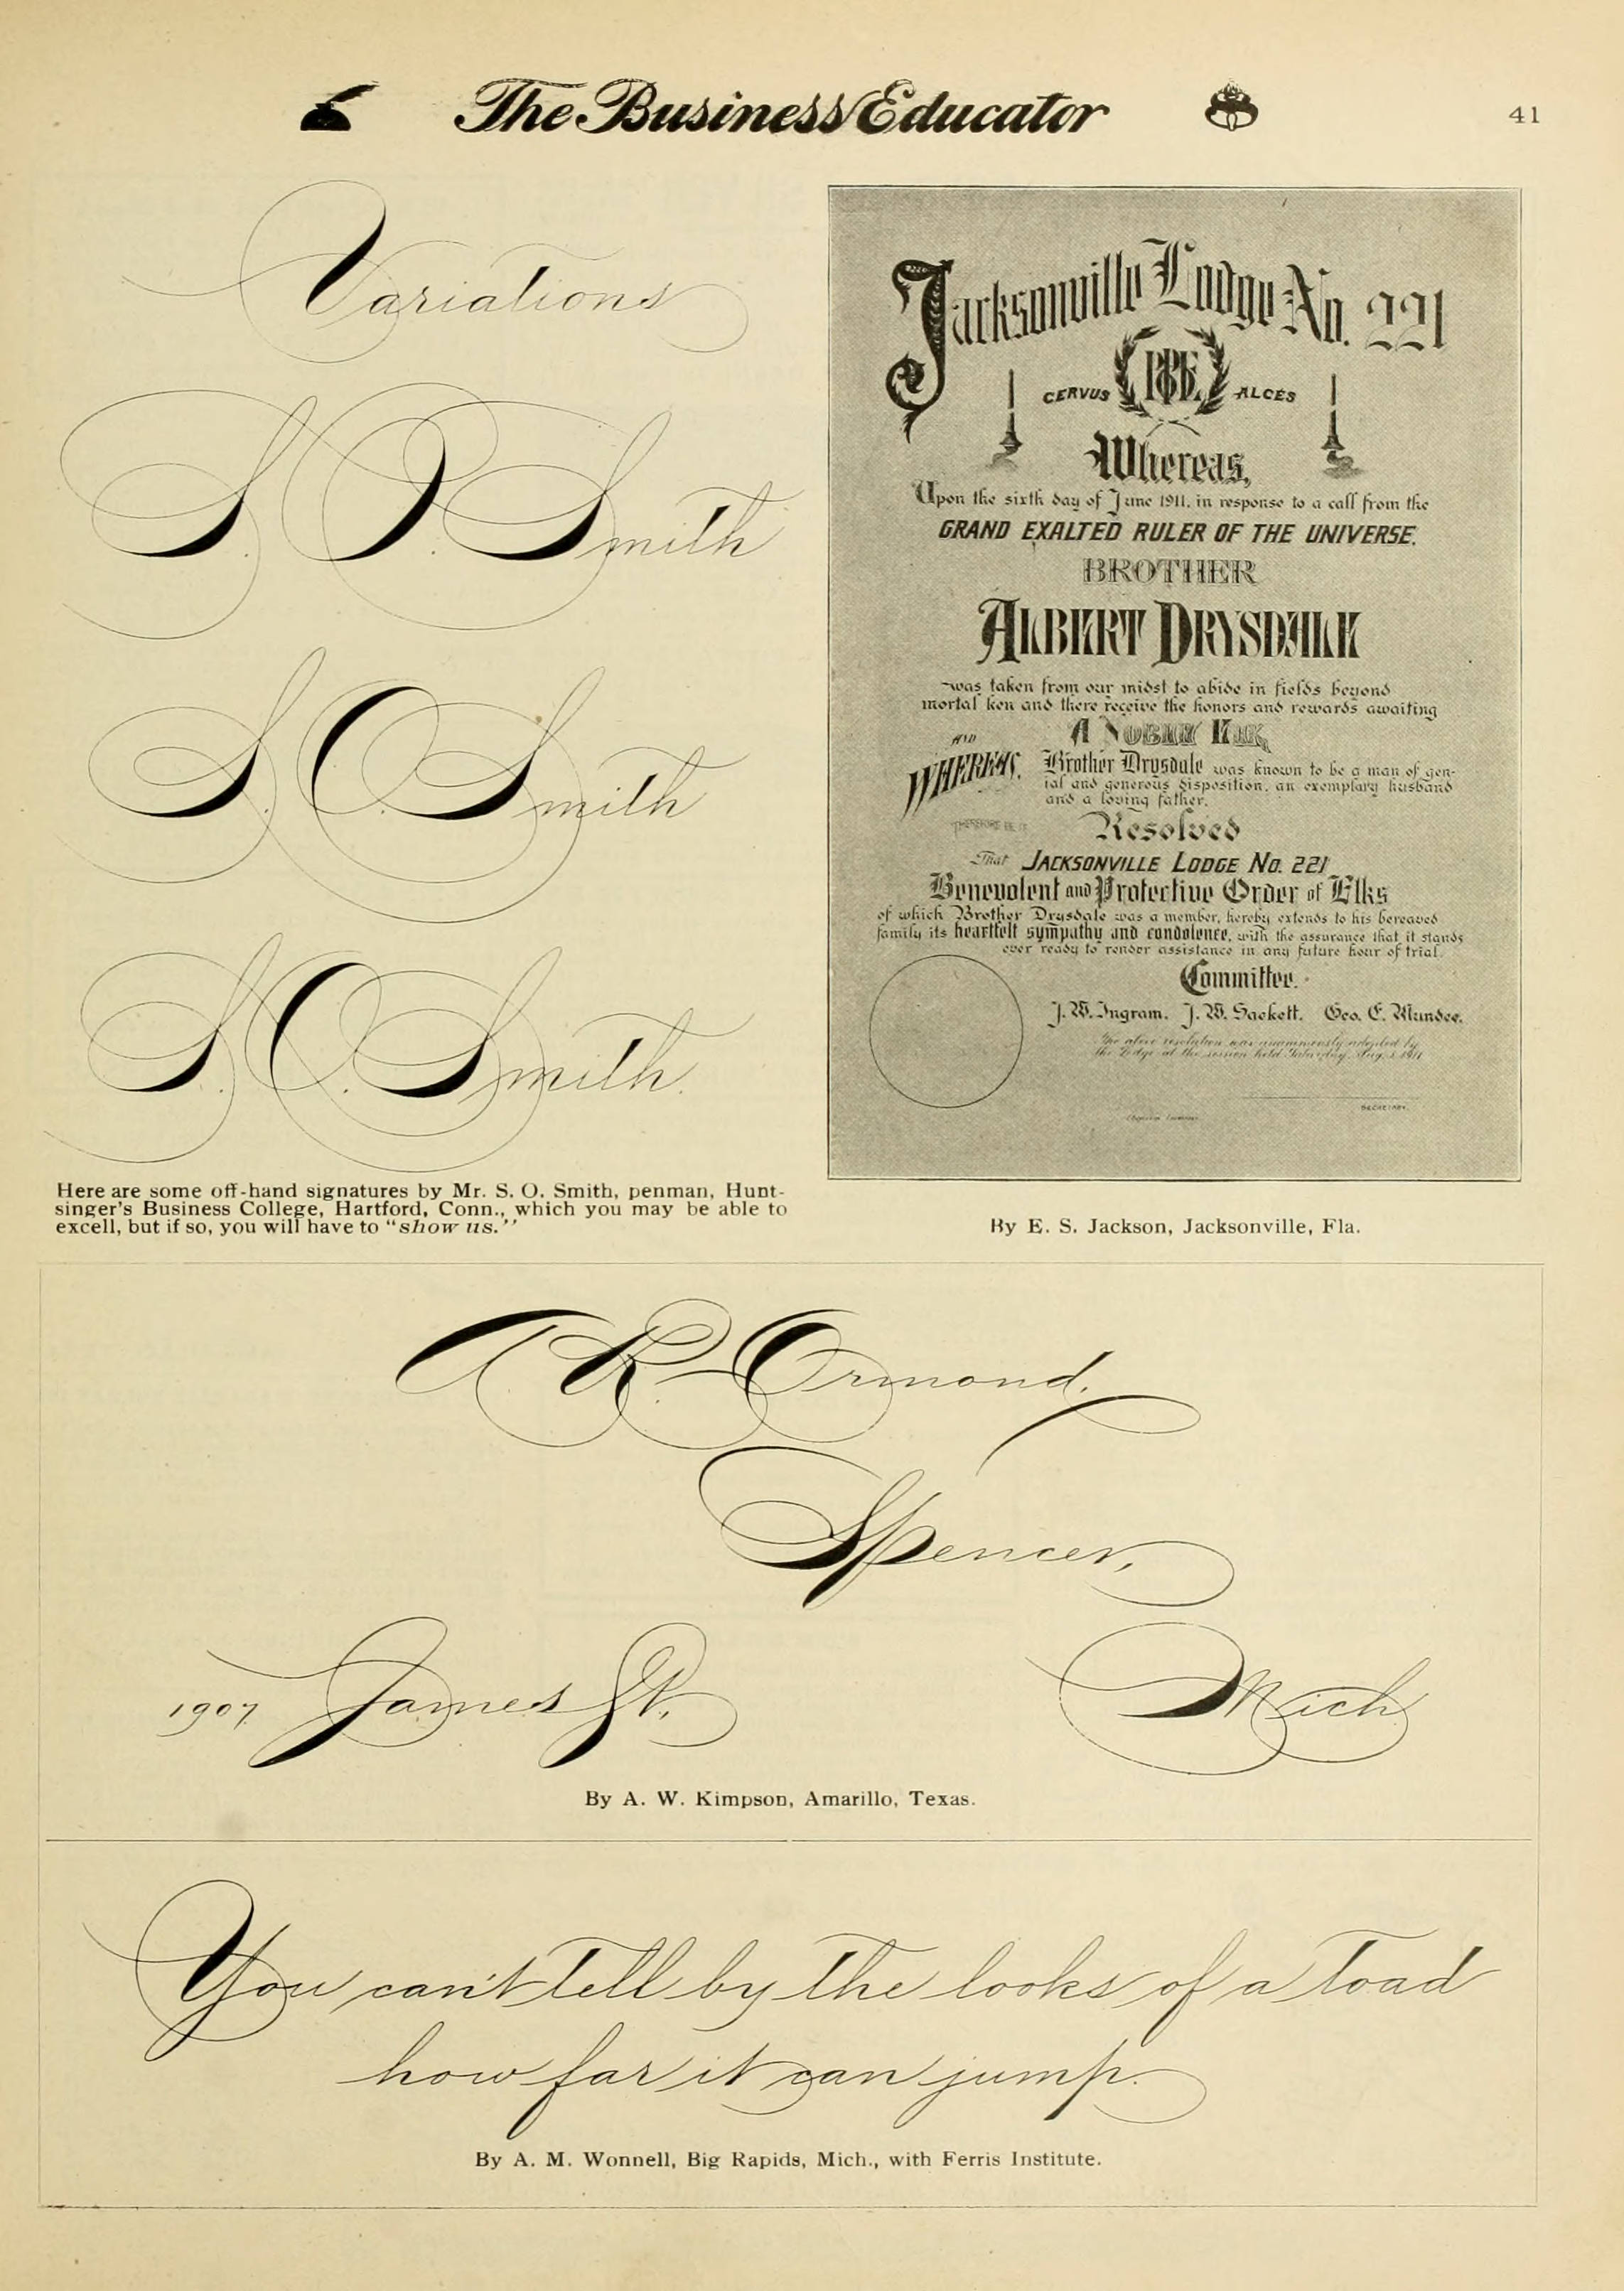 The Business Educator
41
Variations
S. O. Smith
S. O. Smith
S. O. Smith
Here are some off-hand signatures by Mr. S. O. Smith, penman, Hunt-
singer's Business College, Hartford, Conn., which you may be able to
excell, but if so, you will have to "show us."
Jacksonville Lodge No. 221
CERVUS BPOE ALCES
Whereas,
Upon the sixth day of June 1911, in response to a call from the
GRAND EXALTED RULER OF THE UNIVERSE,
BROTHER
ALBERT DRYSDALE
was taken from our midst to abide in fields beyond
mortal ken and there receive the honors and rewards awaiting
A NOBLE ELK,
AND
WHEREAS, Brother Drysdale was known to be a man of gen-
ial and generous disposition, an exemplary husband
and a loving father.
THEREFORE BE IT Resolved
That JACKSONVILLE LODGE No. 221
Benevolent and Protective Order of Elks
of which Brother Drysdale was a member, hereby extends to his bereaved
family its heartfelt sympathy and condolence, with the assurance that it stands
ever ready to render assistance in any future hour of trial.
Committee.
J. W. Ingram. J. W. Sackett. Geo. E. Mundee.
The above resolution was unanimously adopted by
the Lodge at the session held Saturday, Aug. 1911
SECRETARY.
By E. S. Jackson, Jacksonville, Fla.
A R Ormond,
Spencer,
1907 James St. Mich
By A. W. Kimpson, Amarillo, Texas.
You can't tell by the looks of a toad
how far it can jump.
By A. M. Wonnell, Big Rapids, Mich., with Ferris Institute.